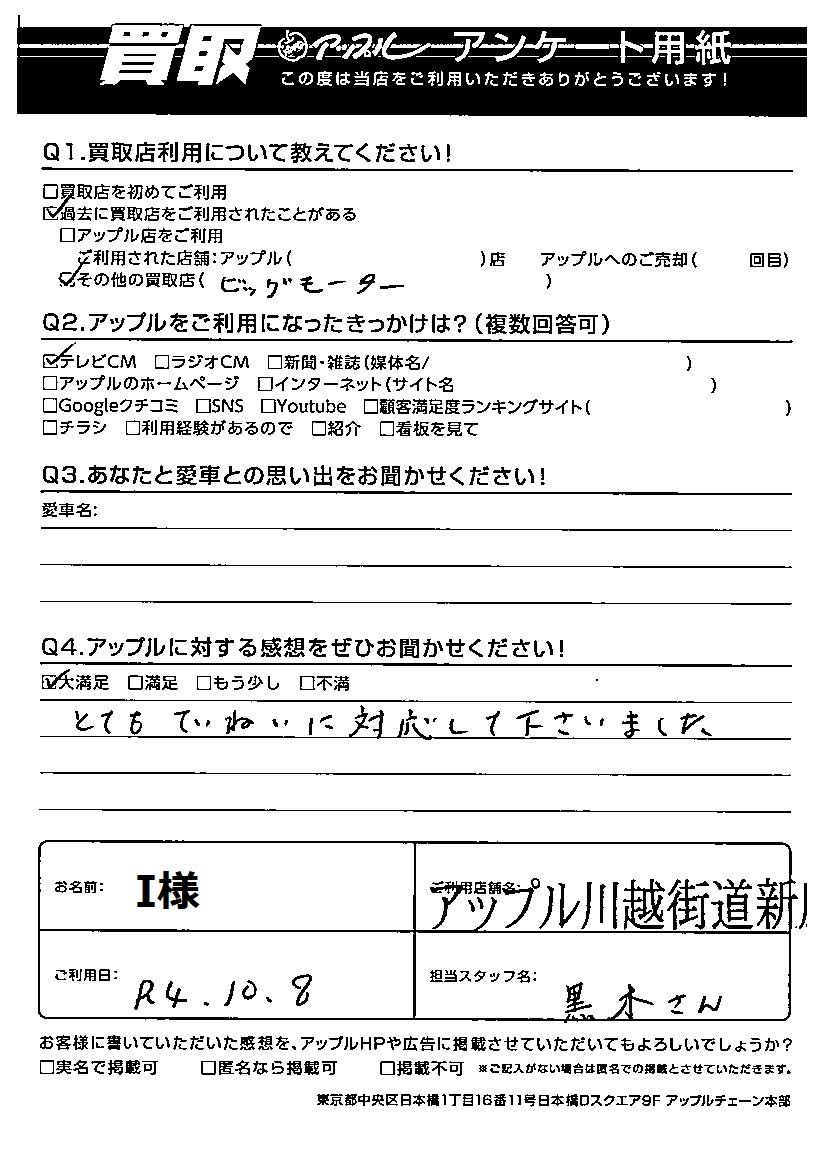 買取 アップル アンケート用紙
この度は当店をご利用いただきありがとうございます!
Q1.買取店利用について教えてください!
□買取店を初めてご利用
☑過去に買取店をご利用されたことがある
□アップル店をご利用
ご利用された店舗:アップル( )店 アップルへのご売却( 回目)
☑その他の買取店( ビッグモーター )
Q2.アップルをご利用になったきっかけは?(複数回答可)
☑テレビCM □ラジオCM □新聞・雑誌(媒体名/ )
□アップルのホームページ □インターネット(サイト名 )
□Googleクチコミ □SNS □Youtube □顧客満足度ランキングサイト( )
□チラシ □利用経験があるので □紹介 □看板を見て
Q3.あなたと愛車との思い出をお聞かせください!
愛車名:
Q4.アップルに対する感想をぜひお聞かせください!
☑大満足 □満足 □もう少し □不満
とてもていねいに対応して下さいました
お名前: I様
ご利用店舗名:
アップル川越街道新
ご利用日: R4.10.8
担当スタッフ名: 黒木さん
お客様に書いていただいた感想を、アップルHPや広告に掲載させていただいてもよろしいでしょうか?
□実名で掲載可 □匿名なら掲載可 □掲載不可 ※ご記入がない場合は匿名での掲載とさせていただきます。
東京都中央区日本橋1丁目16番11号日本橋Dスクエア9F アップルチェーン本部